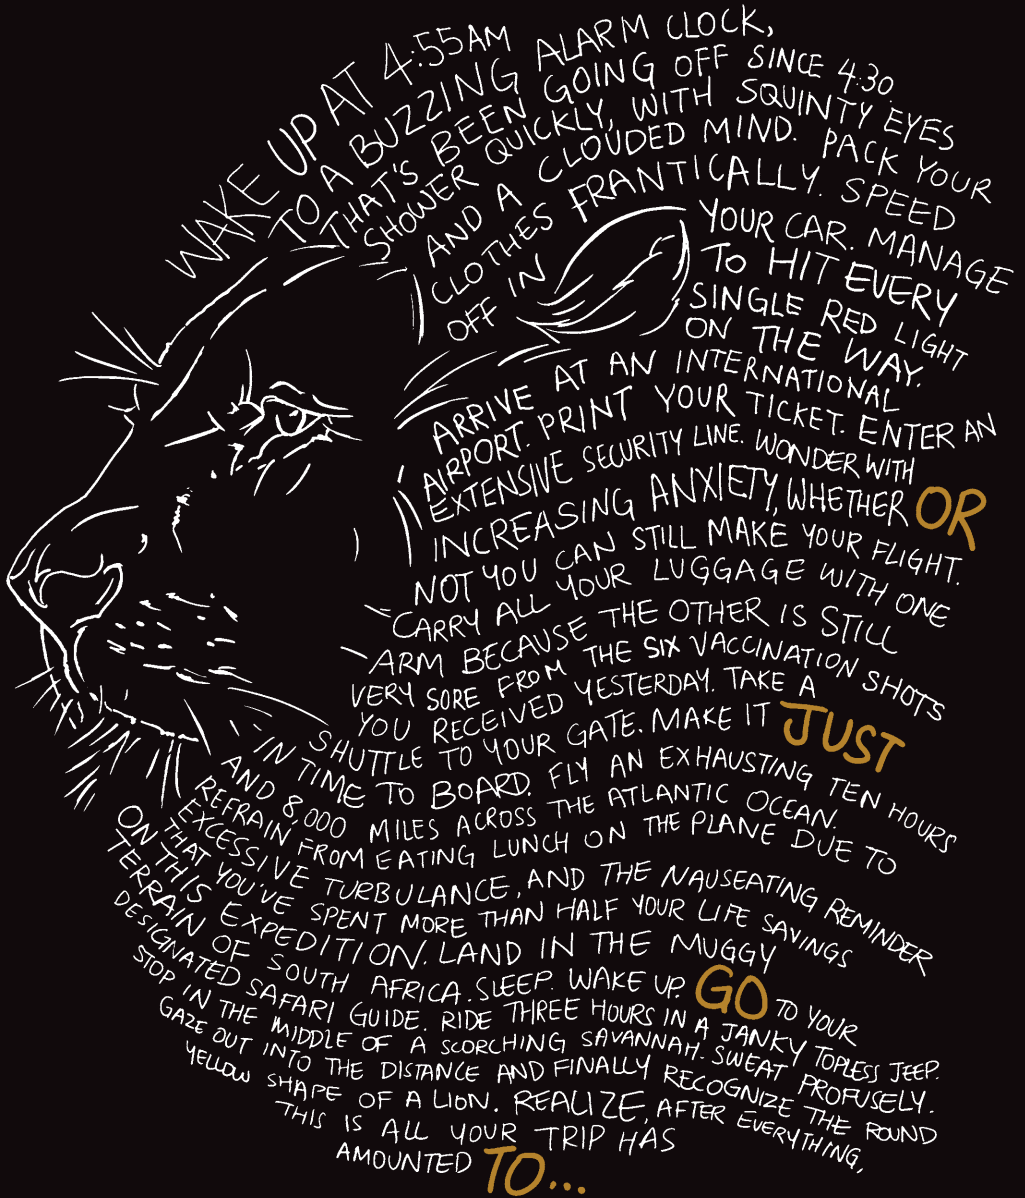 WAKE UP AT 4:55AM
TO A BUZZING ALARM CLOCK,
THAT'S BEEN GOING OFF SINCE 4:30.
SHOWER QUICKLY, WITH SQUINTY EYES
AND A CLOUDED MIND. PACK YOUR
CLOTHES FRANTICALLY. SPEED
OFF IN YOUR CAR. MANAGE
TO HIT EVERY
SINGLE RED LIGHT
ON THE WAY.
ARRIVE AT AN INTERNATIONAL
AIRPORT. PRINT YOUR TICKET. ENTER AN
EXTENSIVE SECURITY LINE. WONDER WITH
INCREASING ANXIETY, WHETHER OR
NOT YOU CAN STILL MAKE YOUR FLIGHT.
CARRY ALL YOUR LUGGAGE WITH ONE
ARM BECAUSE THE OTHER IS STILL
VERY SORE FROM THE SIX VACCINATION SHOTS
YOU RECEIVED YESTERDAY. TAKE A
SHUTTLE TO YOUR GATE. MAKE IT JUST
IN TIME TO BOARD. FLY AN EXHAUSTING TEN HOURS
AND 8,000 MILES ACROSS THE ATLANTIC OCEAN.
REFRAIN FROM EATING LUNCH ON THE PLANE DUE TO
EXCESSIVE TURBULANCE, AND THE NAUSEATING REMINDER
THAT YOU'VE SPENT MORE THAN HALF YOUR LIFE SAVINGS
ON THIS EXPEDITION. LAND IN THE MUGGY
TERRAIN OF SOUTH AFRICA. SLEEP. WAKE UP. GO TO YOUR
DESIGNATED SAFARI GUIDE. RIDE THREE HOURS IN A JANKY TOPLESS JEEP.
STOP IN THE MIDDLE OF A SCORCHING SAVANNAH. SWEAT PROFUSELY.
GAZE OUT INTO THE DISTANCE AND FINALLY RECOGNIZE THE ROUND
YELLOW SHAPE OF A LION. REALIZE, AFTER EVERYTHING,
THIS IS ALL YOUR TRIP HAS
AMOUNTED TO...